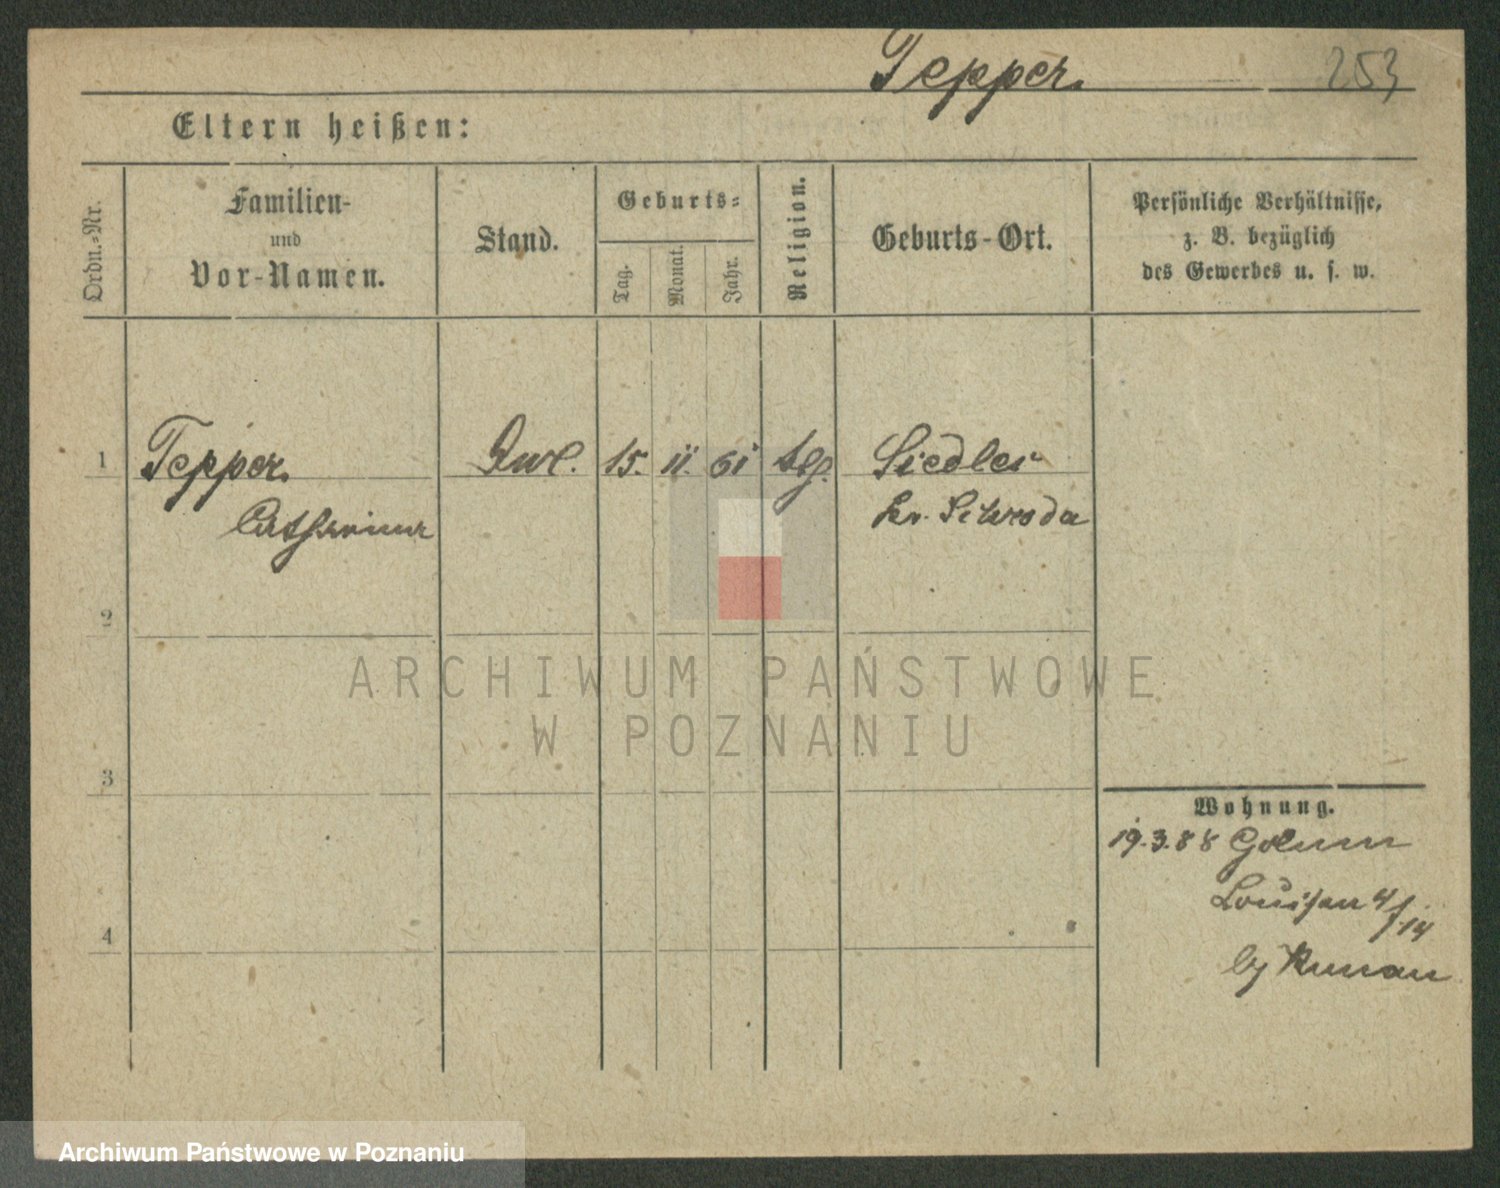 Tepper.
253
Eltern heißen:
Ordn.-Nr.
Familien-
und
Vor-Namen.
Stand.
Geburts-
Tag.
Monat.
Jahr.
Religion.
Geburts-Ort.
Persönliche Verhältnisse,
z. B. bezüglich
des Gewerbes u. s. w.
1 Tepper. 15. 11. 61 Siedlec
Catharina Kr. Schroda
2
ARCHIWUM PAŃSTWOWE
W POZNANIU
3
Wohnung.
19.3.88
Louisen 4/14
4
Archiwum Państwowe w Poznaniu